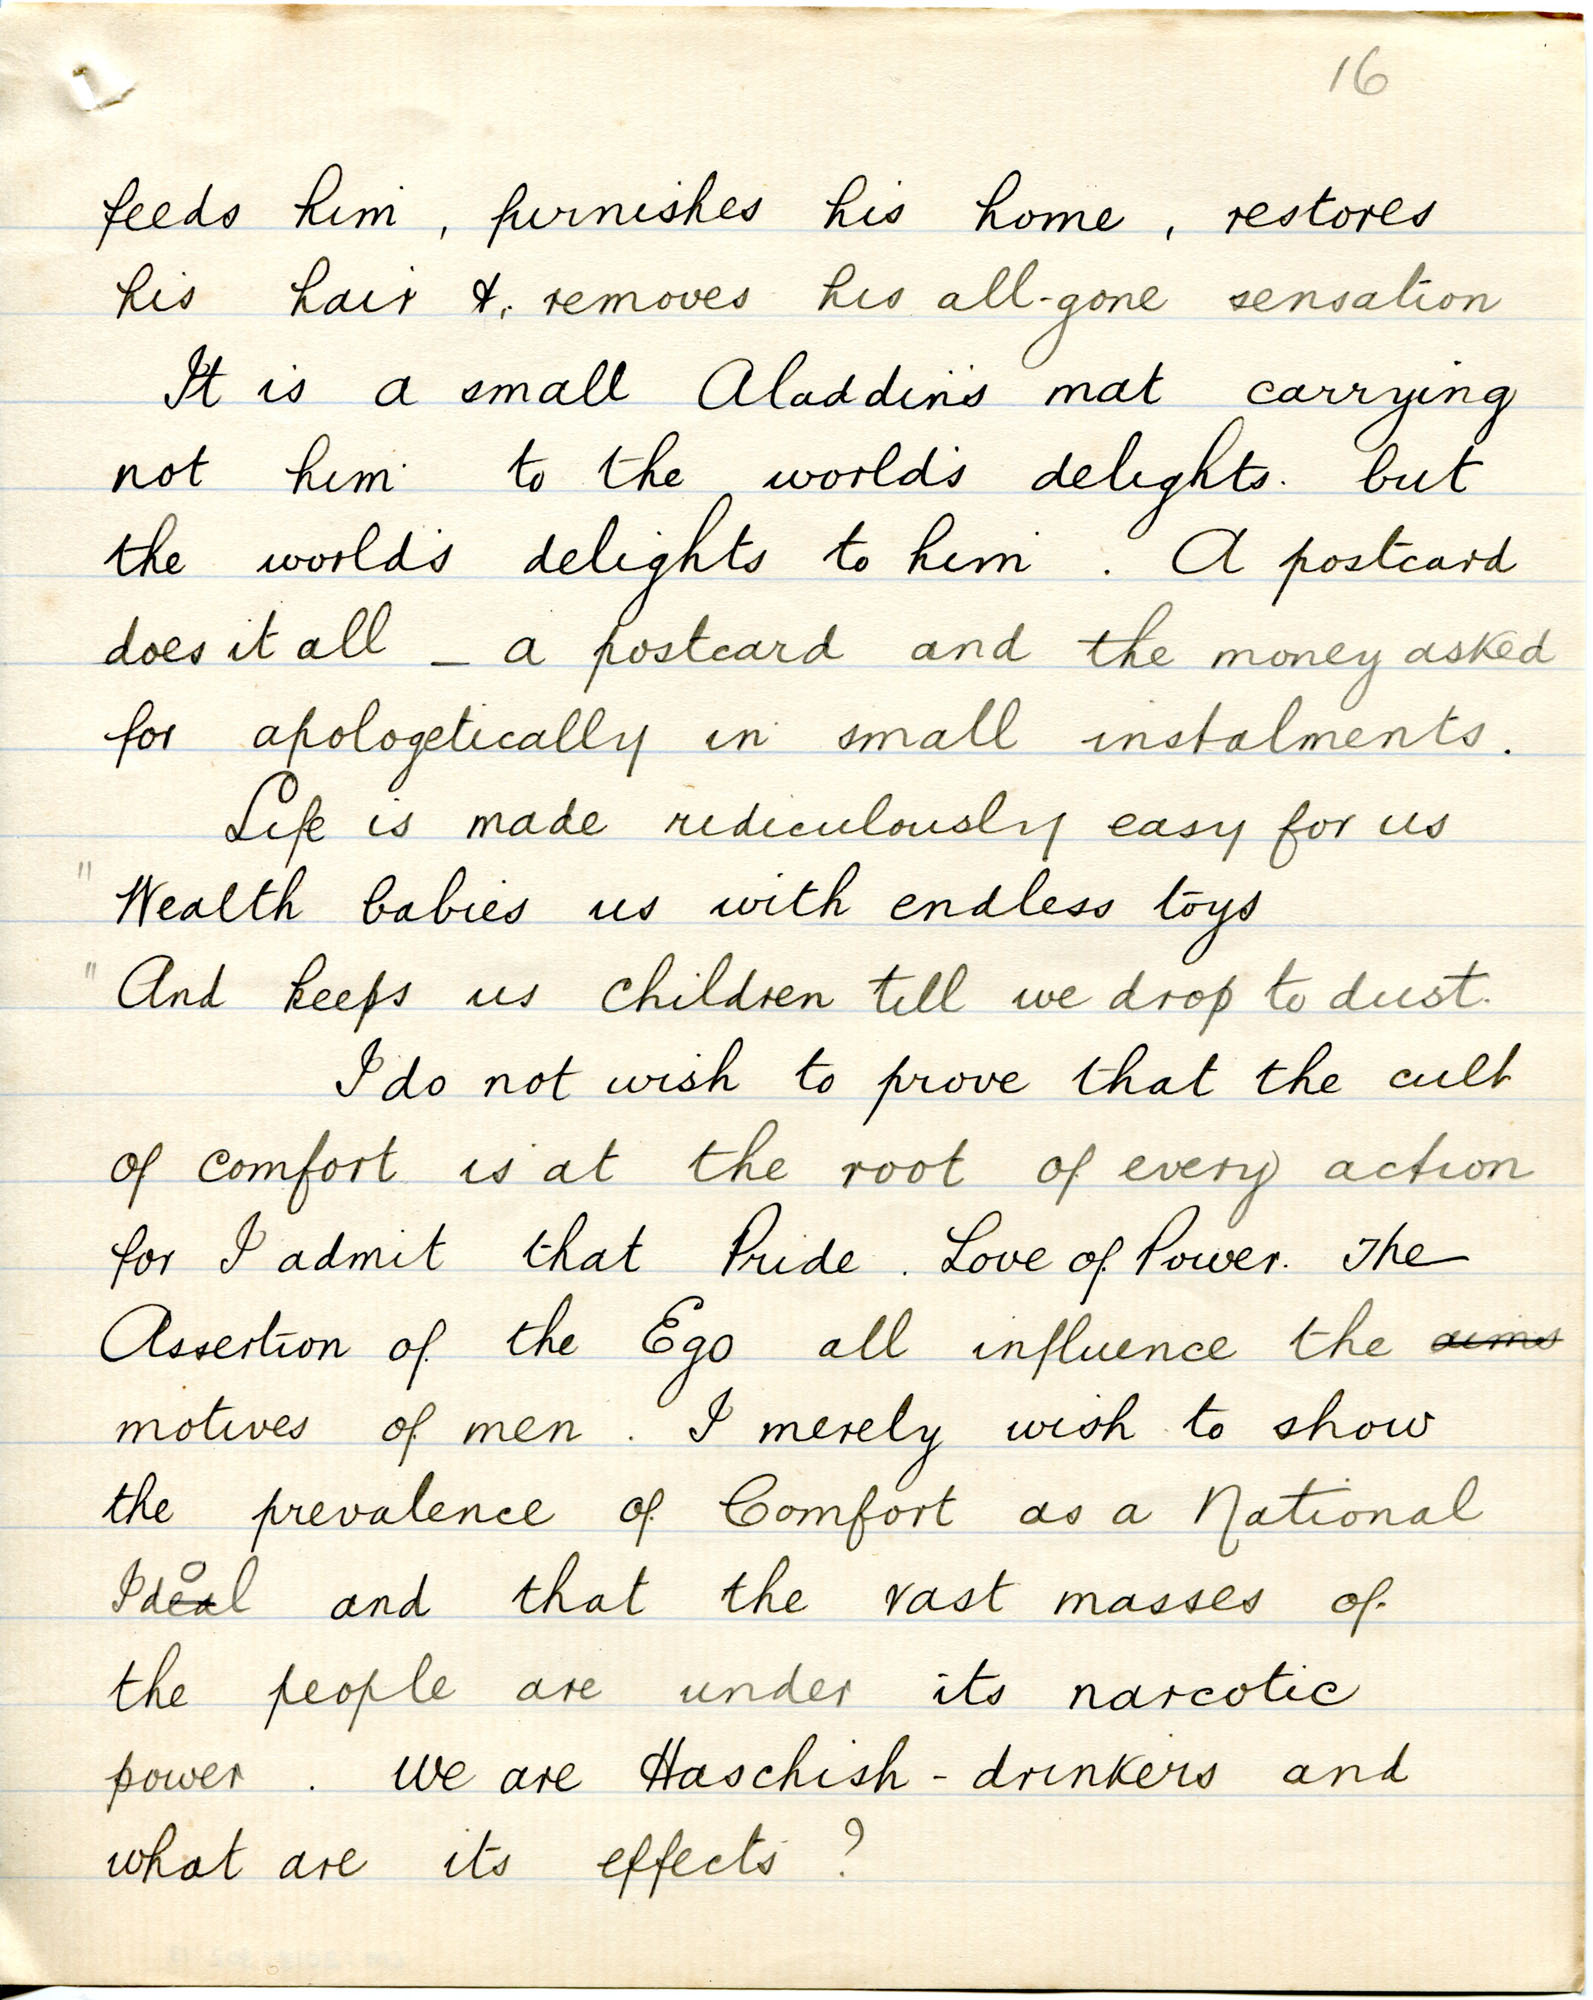 16
feeds him, furnishes his home, restores
his hair &, removes his all-gone sensation
It is a small Aladdin's mat carrying
not him to the world's delights. but
the world's delights to him. A postcard
does it all – a postcard and the money asked
for apologetically in small instalments.
Life is made ridiculously easy for us
"Wealth babies us with endless toys
"And keeps us children till we drop to dust.
I do not wish to prove that the cult
of comfort is at the root of every action
for I admit that Pride. Love of Power. The
Assertion of the Ego all influence the aims
motives of men. I merely wish to show
the prevalence of Comfort as a National
Idol and that the vast masses of
the people are under its narcotic
power. We are Haschish-drinkers and
what are its effects?